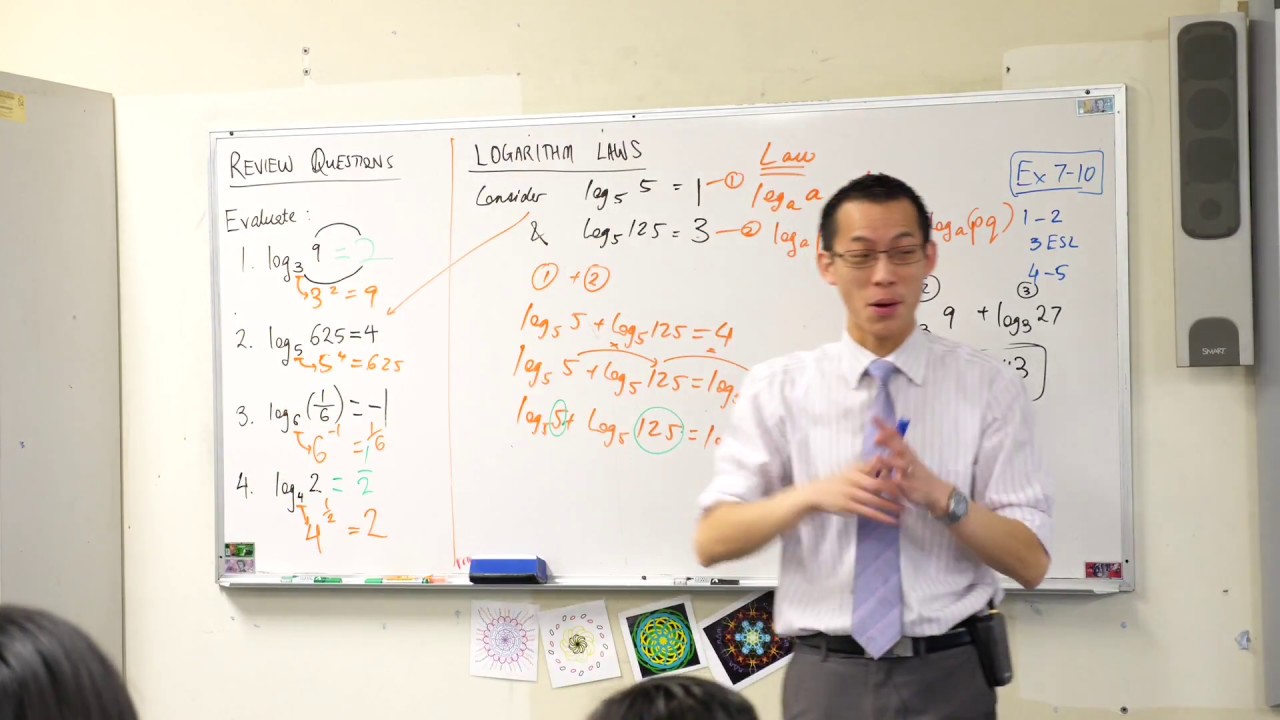 REVIEW QUESTIONS
Evaluate:
1. log₃ 9 = 2
3² = 9
2. log₅ 625 = 4
5⁴ = 625
3. log₆ (1/6) = -1
6⁻¹ = 1/6
4. log₄ 2 = 1/2
4^½ = 2
LOGARITHM LAWS
Consider log₅ 5 = 1 — ①
& log₅ 125 = 3 — ②
① + ②
log₅ 5 + log₅ 125 = 4
log₅ 5 + log₅ 125 = log₅
log₅ 5 + log₅ 125 = lo
Law
logₐ a
logₐ logₐ(pq)
② ③
₃ 9 + log₃ 27
3
Ex 7-10
1-2
3 ESL
4-5
SMART